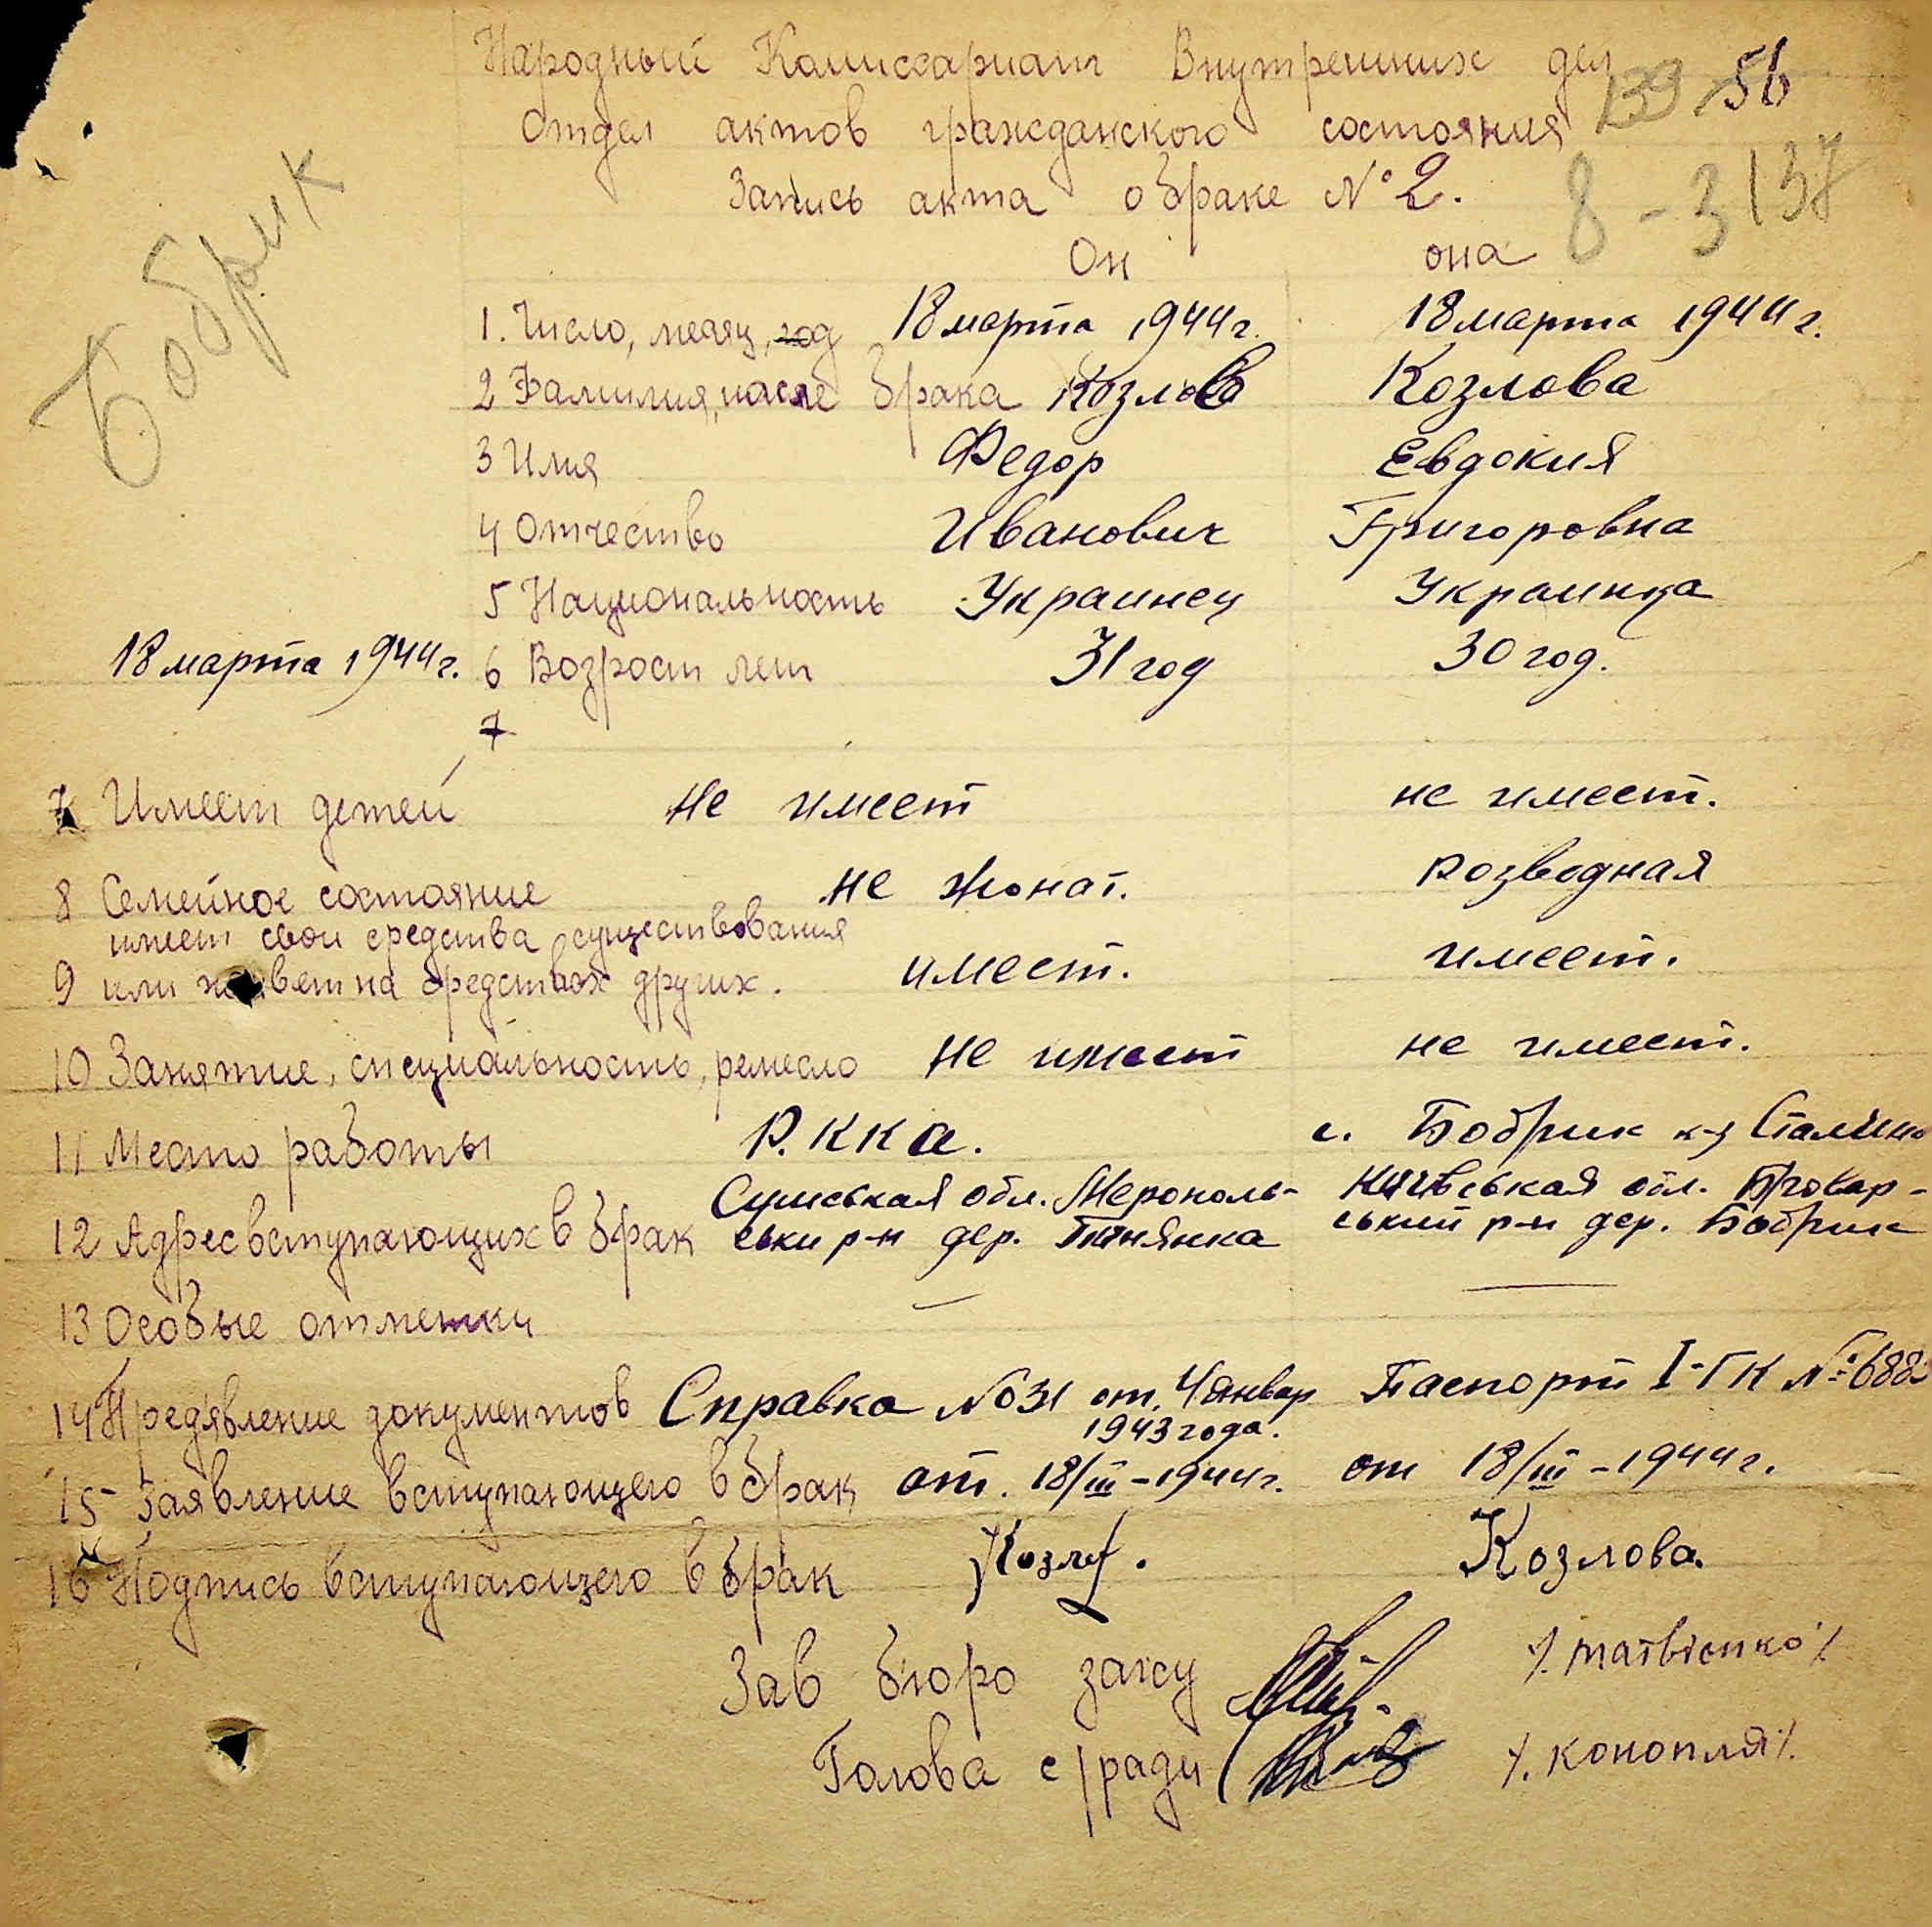 Народный Комиссариат Внутренних дел
139 56
отдел актов гражданского состояния
Запись акта о браке № 2.
8-3 137
Бобрик
Он она
1. Число, месяц, год 18 марта 1944 г. 18 марта 1944 г.
2 Фамилия, после брака Козлов Козлова
3 Имя Федор Евдокия
4 Отчество Иванович Григоровна
5 Национальность Украинец Украинка
18 марта 1944 г. 6 Возрост лет 31 год 30 год.
7
7 Имеет детей не имеет не имеет.
8 Семейное состояние не жонат. розводная
имеет свои средства существования
9 или живет на средствах других. имеет. имеет.
10 Занятие, специальность, ремесло не имеет не имеет.
11 Место работы Р.К.К.А. с. Бобрик к-з Сталина
Сумськая обл. Киевськая обл. Бровар-
12 Адрес вступающих в брак ськи р-н дер. ський р-н дер. Бобрик
13 Особые отметки — —
14 Предявление документов Справка № 31 от. 4 январ Паспорт I-ГК №
1943 года.
15 Заявление вступающего в брак от. 18/III-1944 г. от 18/III-1944 г.
16 Подпись вступающего в брак Козлов. Козлова.
Зав бюро загсу /. Матвіенко /.
Голова с/ради /. Конопля /.